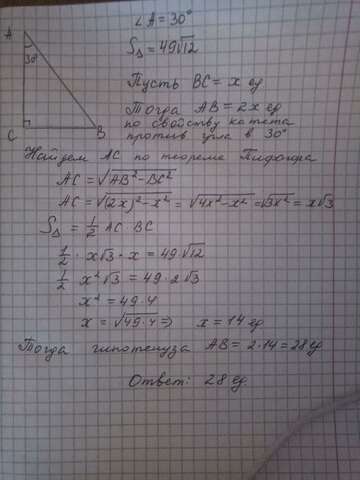 ∠A = 30°
A
30°
C
B
S△ = 49√12
Пусть BC = x ед
Тогда AB = 2x ед
по свойству катета
против угла в 30°
Найдем AC по теореме Пифагора
AC = √AB² - BC²
AC = √(2x)² - x² = √4x² - x² = √3x² = x√3
S△ = 1/2 AC · BC
1/2 · x√3 · x = 49 · √12
1/2 x²√3 = 49 · 2√3
x² = 49 · 4
x = √49 · 4 ⇒ x = 14 ед
Тогда гипотенуза AB = 2 · 14 = 28 ед
Ответ: 28 ед.